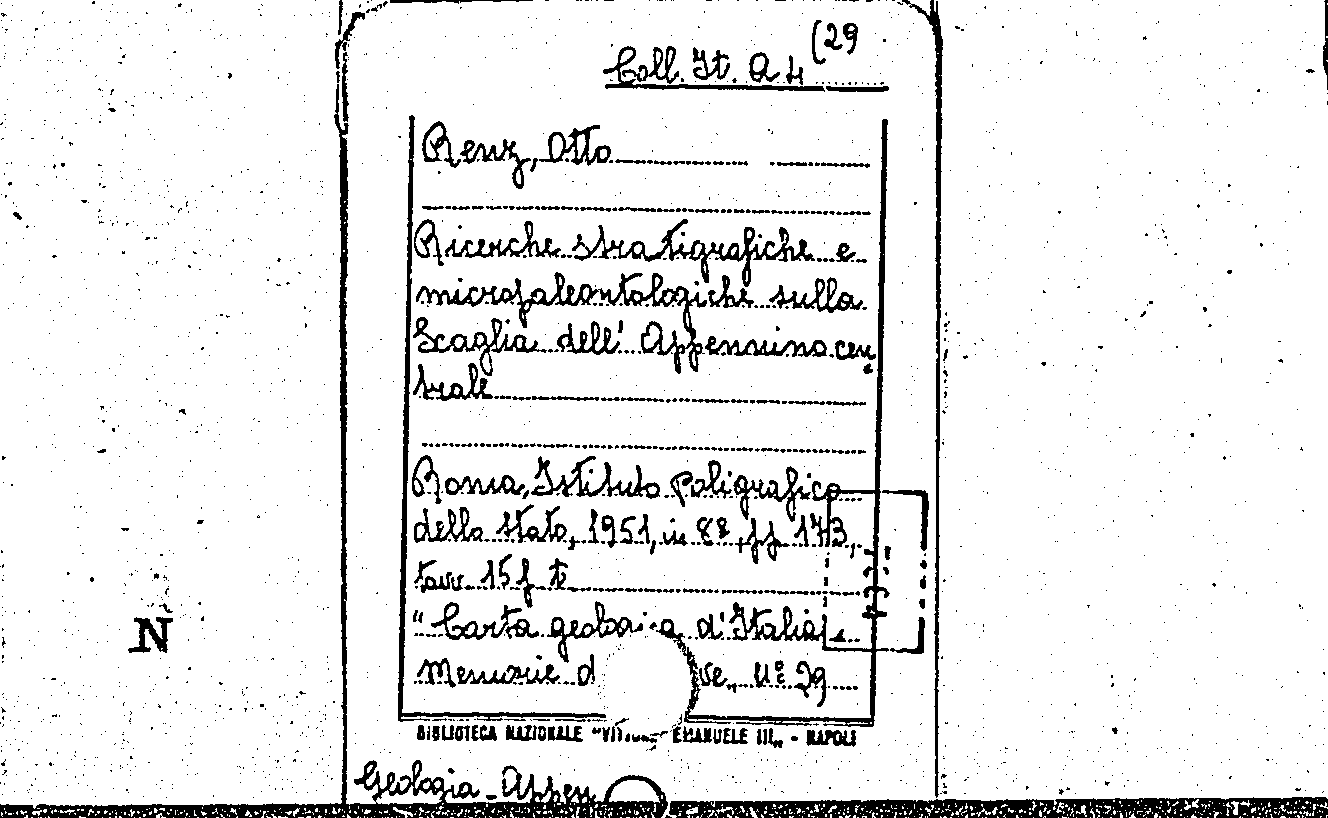 Coll. It. Q 4 (29
Renz, Otto
Ricerche stratigrafiche e
micropaleontologiche sulla
Scaglia dell' Appennino cen
trale
Roma, Istituto Poligrafico
dello Stato, 1951, in 8º, pp. 173,
tavv. 15 f. t.
"Carta geologica d'Italia.
Memorie d ve„ nº 29
N
BIBLIOTECA NAZIONALE "VITT EMANUELE III„ - NAPOLI
Geologia - Appen